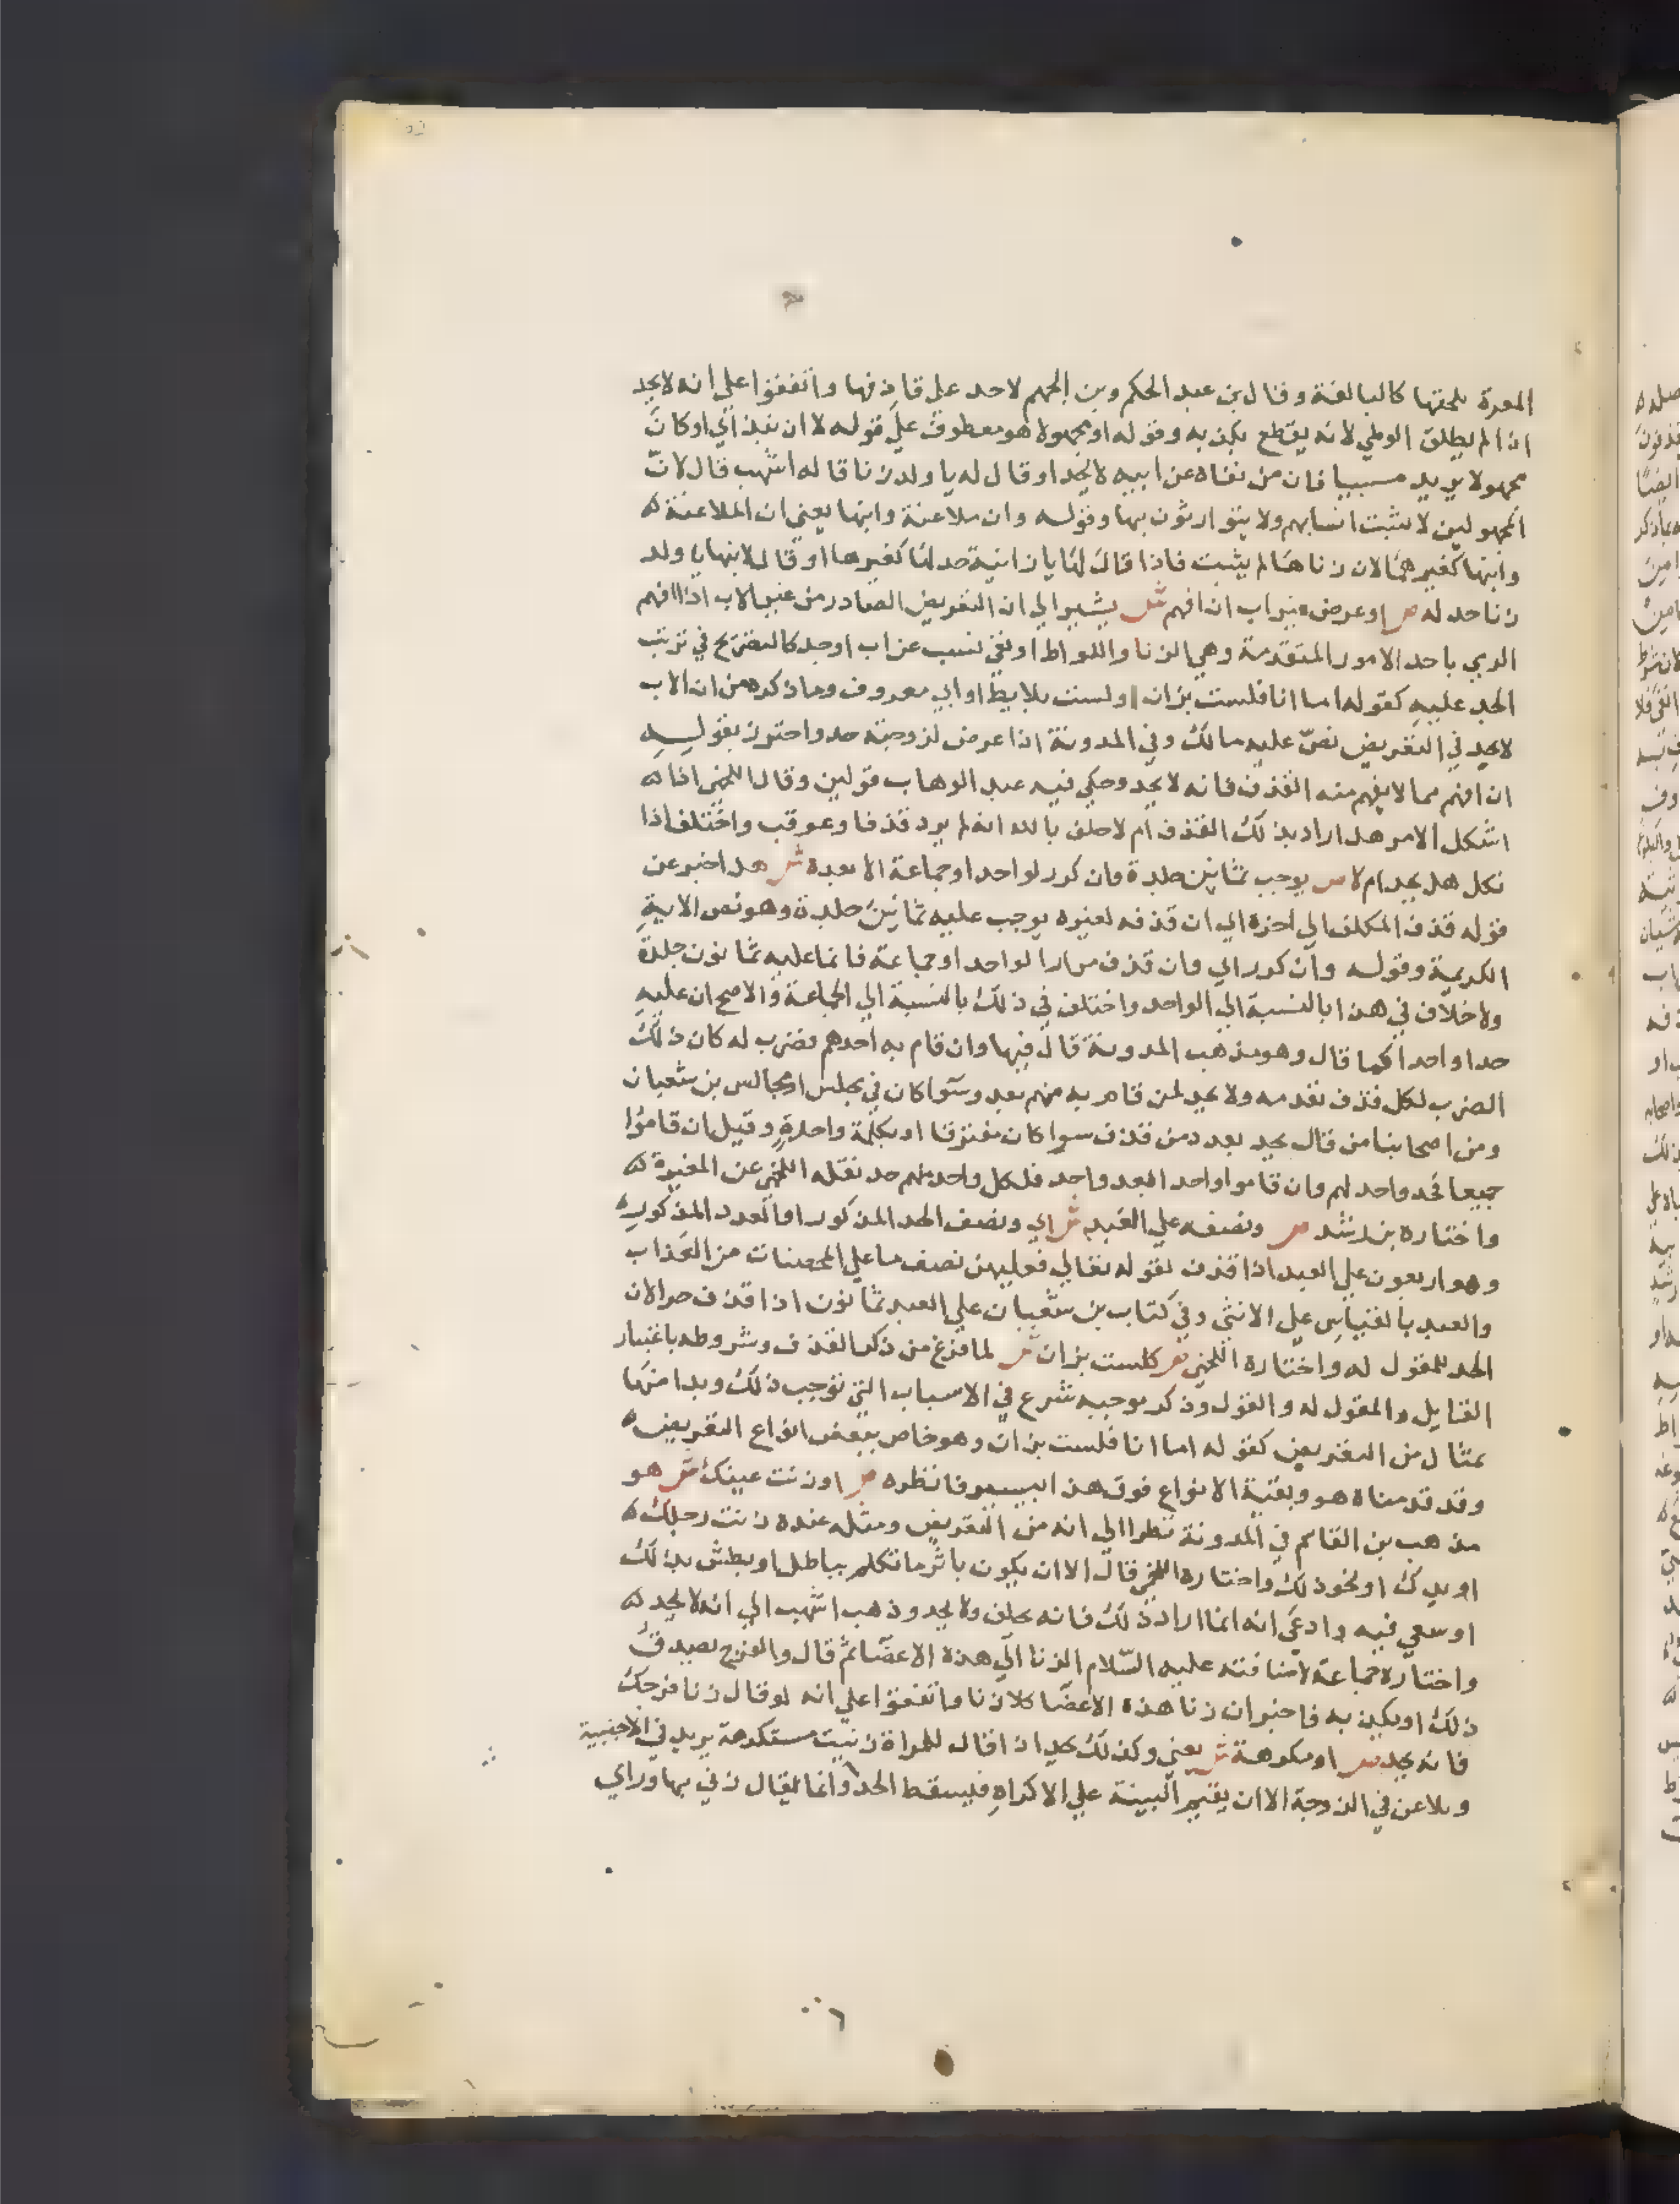 المعرة يلحقها كالبالغة وقال بن عبد الحكم وبن الجهم لاحد على قاذفها واتفقوا علي انه لا يحد
ان لم يطلق الوطي لانه يقطع بكذبه وقوله او مجهولا هو معطوف علي قوله لا ان نبذ اي او كان
مجهولا يريد مسبيا فان من نفاه عن ابيه لا يحد او قال له يا ولد زنا قاله اشهب قال لان
المجهولين لا تثبت انسابهم ولا يتوارثون بها وقوله وان ملاعنة وابنها يعني ان الملاعنة
وابنها كغيرهما لان زناها لم يثبت فاذا قال لها يا زانية حد لها كغيرها او قال لابنها يا ولد
زنا حد له ص او عرض غير اب ان افهم ش يشير الي ان التعريض الصادر من غير الاب اذا افهم
الرمي باحد الامور المتقدمة وهي الزنا واللواط او نفي نسب عن اب او جد كالتصريح في ترتب
الحد عليه كقوله اما انا فلست بزان او لست بلايط او ابي معروف وما ذكره من ان الاب
لا يحد في التعريض نص عليه مالك وفي المدونة اذا عرض لزوجته حد واحترز بقوله
ان افهم مما لا يفهم منه القذف فانه لا يحد وحكي فيه عبد الوهاب قولين وقال اللخمي اذا
اشكل الامر هل اراد بذلك القذف ام لا حلف بالله انه لم يرد قذفا وعوقب واختلف اذا
نكل هل يحد ام لا ص يوجب ثمانين جلدة وان كرر لواحد او جماعة الا بعده ش هذا خبر عن
قوله قذف المكلف الي اخره اي ان قذفه لغيره يوجب عليه ثمانين جلدة وهو نص الاية
الكريمة وقوله وان كرر اي وان قذف مرارا لواحد او جماعة فانما عليه ثمانون جلدة
ولا خلاف في هذا بالنسبة الي الواحد واختلف في ذلك بالنسبة الي الجماعة والاصح ان عليه
حدا واحدا كما قال وهو مذهب المدونة قال فيها وان قام به احدهم فضرب له كان ذلك
الضرب لكل قذف تقدمه ولا يحد لمن قام به منهم بعد وسوا كان في مجلس او مجالس بن شعبان
ومن اصحابنا من قال يحد بعدد من قذف سوا كان مفترقا او بكلمة واحدة وقيل ان قاموا
جميعا فحد واحد لهم وان قاموا واحد ابعد واحد فلكل واحد منهم حد نقله اللخمي عن المغيرة
واختاره بن رشد ص ونصفه علي العبد ش اي ونصف الحد المذكور او العدد المذكور
وهو اربعون علي العبد اذا قذف لقوله تعالي فعليهن نصف ما علي المحصنات من العذاب
والعبد بالقياس على الانثى وفي كتاب بن شعبان علي العبد ثمانون اذا قذف حرا لان
الحد للمقول له واختاره اللخمي ص كلست بزان ش لما فرغ من ذكر القذف وشروطه باعتبار
القايل والمقول له والقول وذكر موجبه شرع في الاسباب التي توجب ذلك وبدا منها
بمثال من التعريض كقوله اما انا فلست بزان وهو خاص ببعض انواع التعريض
وقد قدمناه هو وبقية الانواع فوق هذا بيسير فانظره ص او زنت عينك ش هو
مذهب بن القاسم في المدونة نظرا الي انه من التعريض ومثله عنده زنت رجلك
او يدك او نحو ذلك واختاره اللخمي قال الا ان يكون باثر ما تكلم بباطل او بطش بذلك
او سعي فيه وادعى انه انما اراد ذلك فانه يحلف ولا يحد وذهب اشهب الي انه لا يحد
واختاره جماعة لاضافته عليه السلام الزنا الي هذه الاعضا ثم قال والفرج يصدق
ذلك او يكذبه فاخبر ان زنا هذه الاعضا كلا زنا واتفقوا علي انه لو قال زنا فرجك
فانه يحد ص او مكرهة ش يعني وكذلك يحد اذا قال للمراة زنيت مستكرهة يريد في الاجنبية
ويلاعن في الزوجة الا ان يقيم البينة علي الاكراه فيسقط الحد وانما يقال زني بها وراي